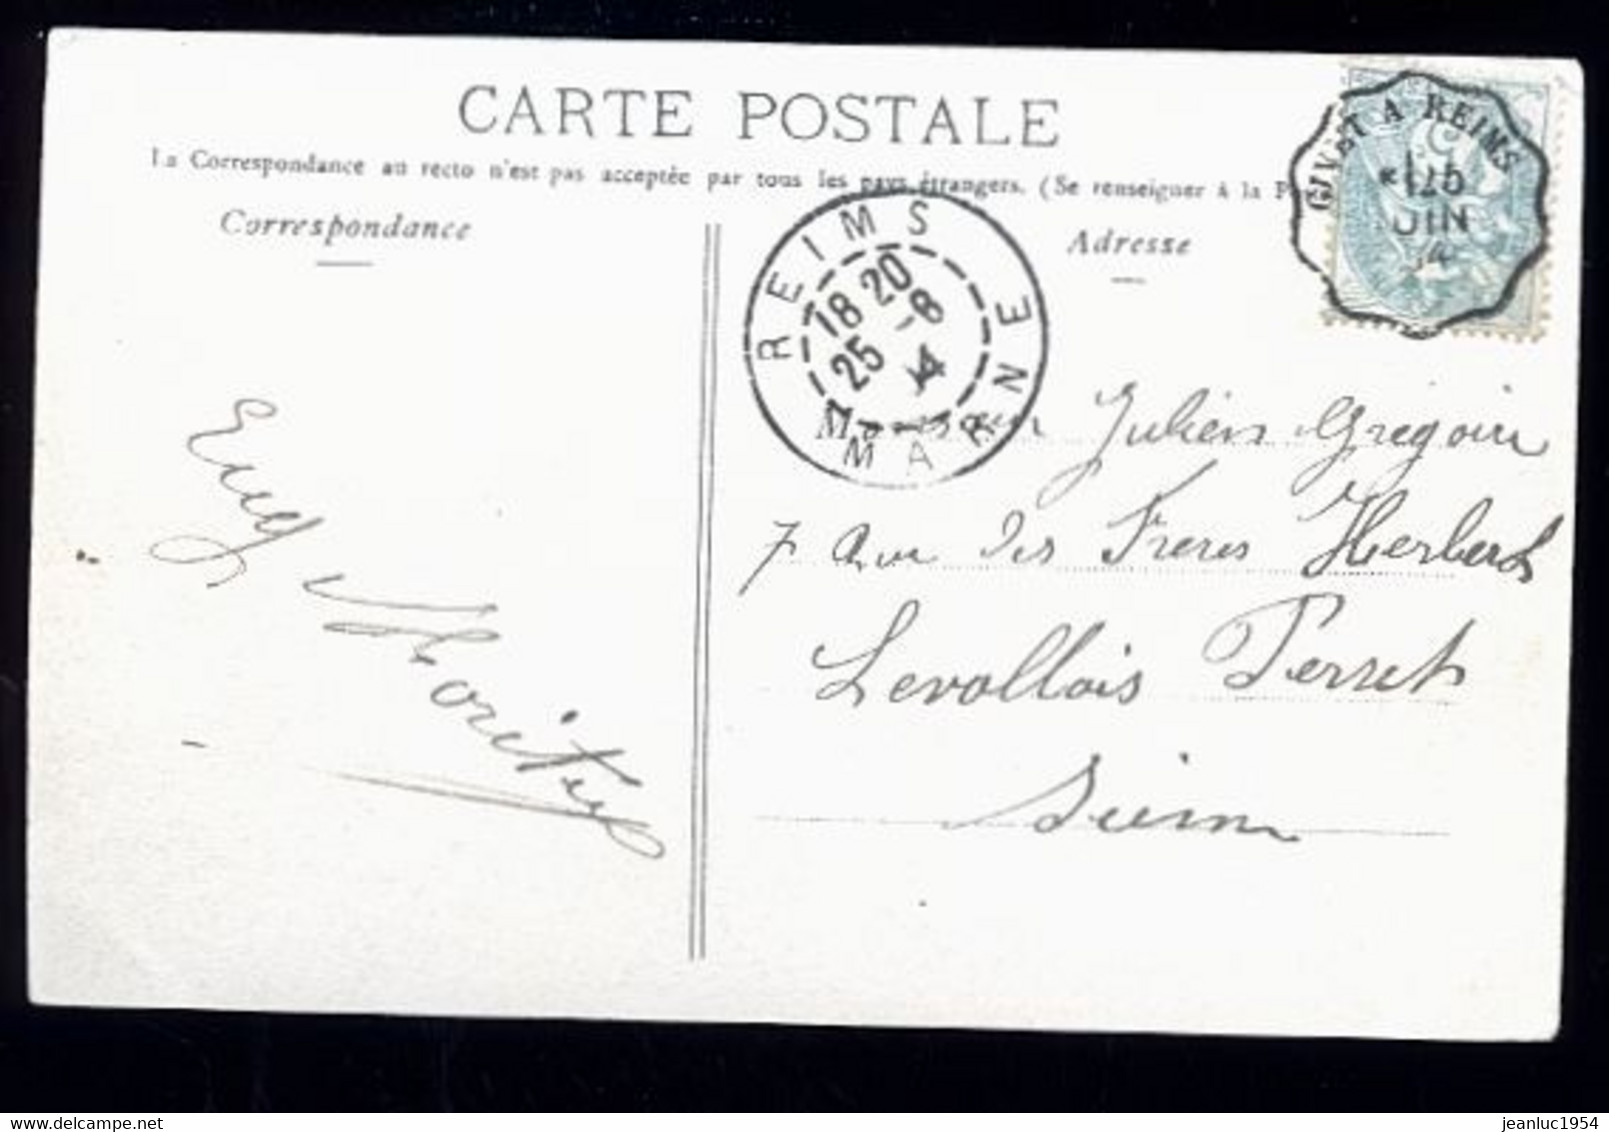 CARTE POSTALE
La Correspondance au recto n'est pas acceptée par tous les pays étrangers. (Se renseigner à la P
Correspondance
Adresse
GIVET A REIMS
25
JUIN
REIMS
18 20
25 -6
4
MARNE
Monsieur Julien Grégoire
7 Rue des Freres Herbert
Levollois Perret
Seine
jeanluc1954